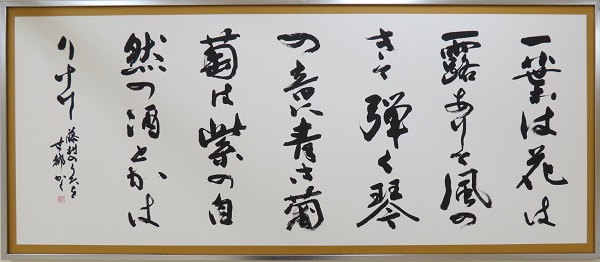 一葉は花は
露ありて風の
きて弾く琴
の音に青き葡
萄は紫の自
然の酒とかは
りけり
藤村のうたを
かく